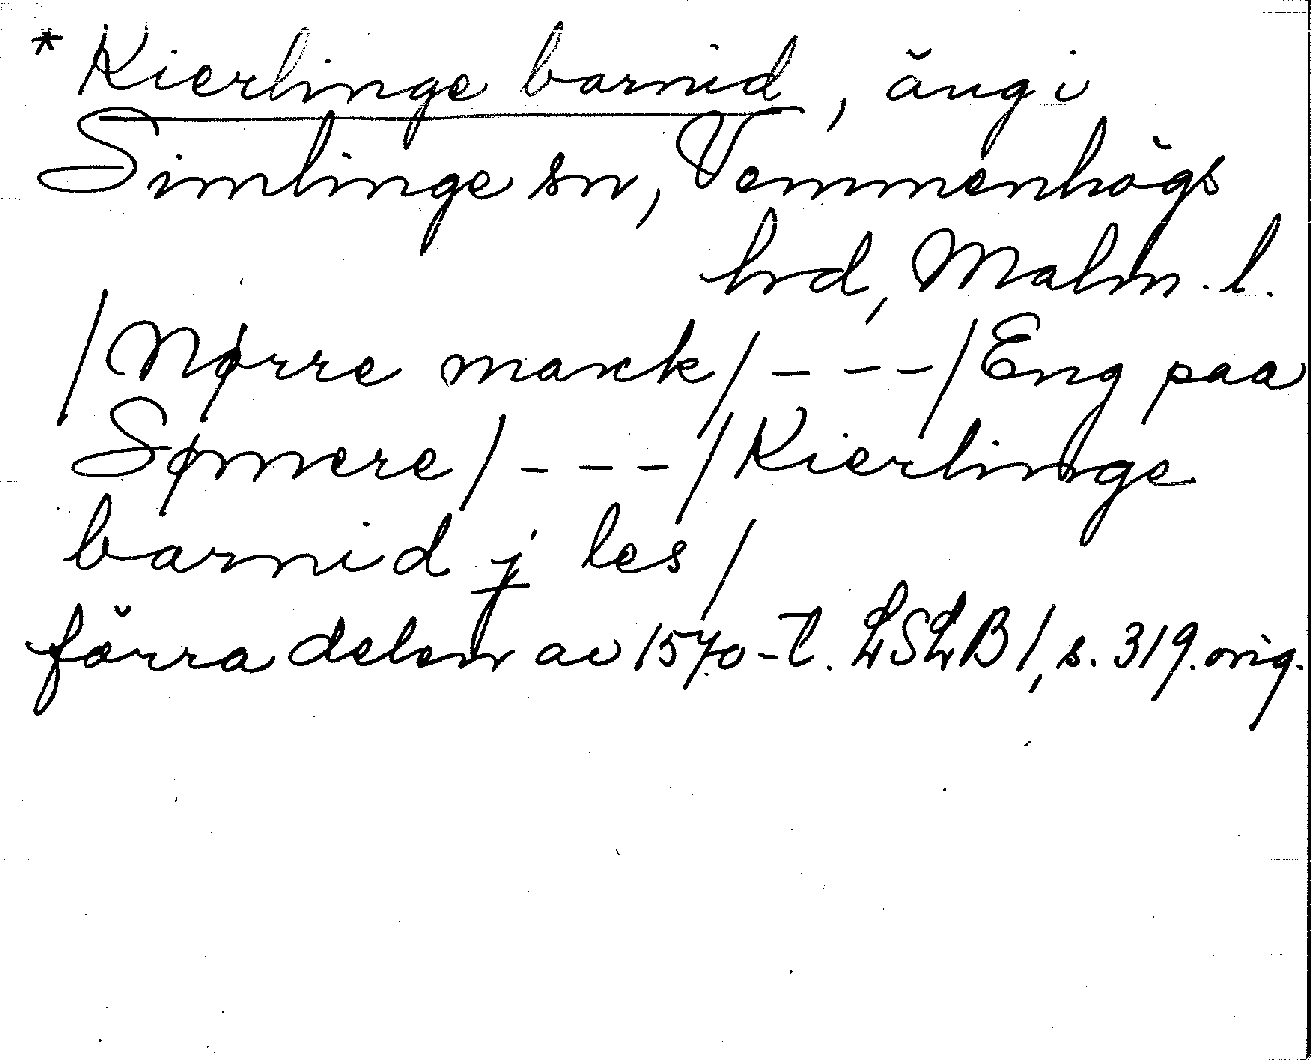 * Kierlinge barnid, äng i
Simlinge sn, Vemmenhögs
hrd, Malm. l.
/Nørre marck/---/Eng paa
Sømere/---/Kierlinge
barnid j les/
förra delen av 1570-t. LSLB 1, s. 319. orig.